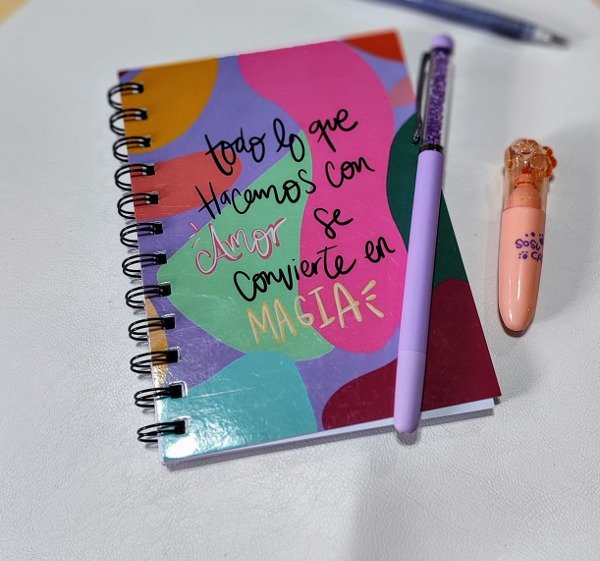 todo lo que
Hacemos con
Amor se
convierte en
MAGIA